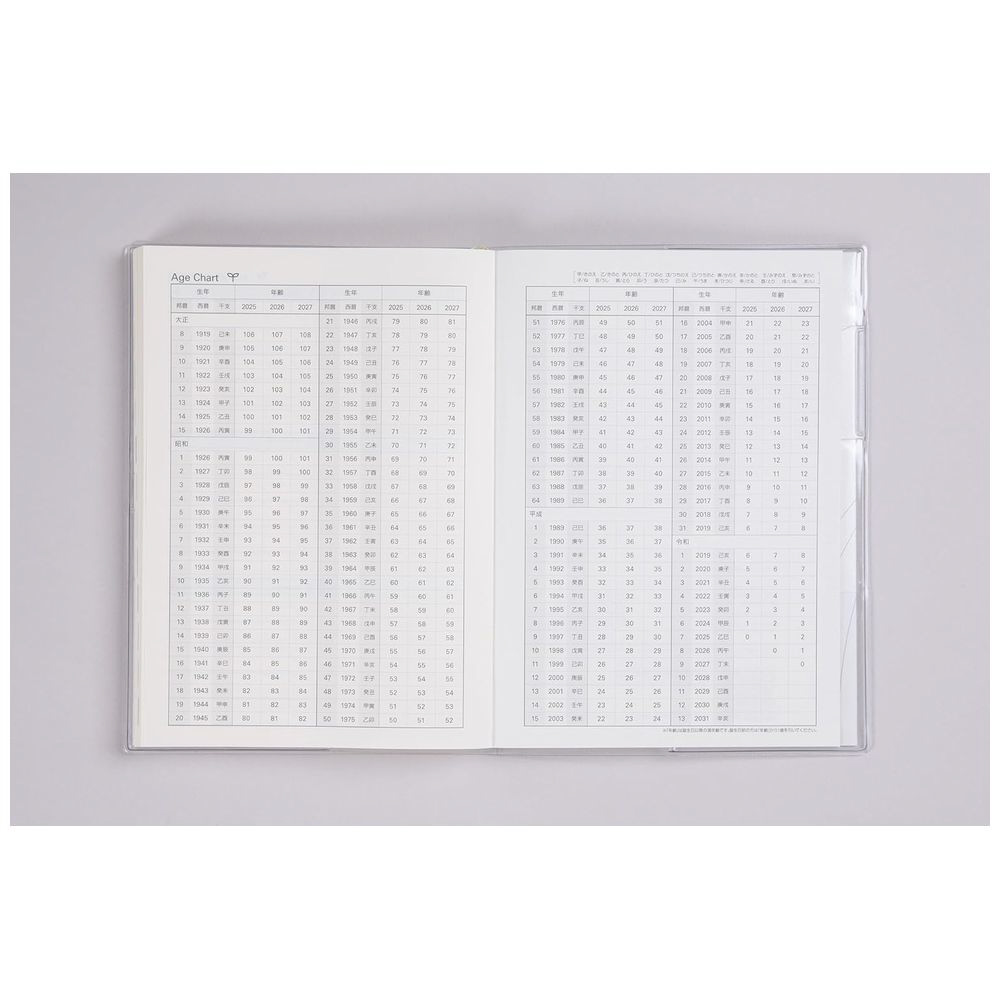 Age Chart
生年 年齢
邦暦 西暦 干支 2025 2026 2027
大正
8 1919 己未 106 107 108
9 1920 庚申 105 106 107
10 1921 辛酉 104 105 106
11 1922 壬戌 103 104 105
12 1923 癸亥 102 103 104
13 1924 甲子 101 102 103
14 1925 乙丑 100 101 102
15 1926 丙寅 99 100 101
昭和
1 1926 丙寅 99 100 101
2 1927 丁卯 98 99 100
3 1928 戊辰 97 98 99
4 1929 己巳 96 97 98
5 1930 庚午 95 96 97
6 1931 辛未 94 95 96
7 1932 壬申 93 94 95
8 1933 癸酉 92 93 94
9 1934 甲戌 91 92 93
10 1935 乙亥 90 91 92
11 1936 丙子 89 90 91
12 1937 丁丑 88 89 90
13 1938 戊寅 87 88 89
14 1939 己卯 86 87 88
15 1940 庚辰 85 86 87
16 1941 辛巳 84 85 86
17 1942 壬午 83 84 85
18 1943 癸未 82 83 84
19 1944 甲申 81 82 83
20 1945 乙酉 80 81 82
生年 年齢
邦暦 西暦 干支 2025 2026 2027
21 1946 丙戌 79 80 81
22 1947 丁亥 78 79 80
23 1948 戊子 77 78 79
24 1949 己丑 76 77 78
25 1950 庚寅 75 76 77
26 1951 辛卯 74 75 76
27 1952 壬辰 73 74 75
28 1953 癸巳 72 73 74
29 1954 甲午 71 72 73
30 1955 乙未 70 71 72
31 1956 丙申 69 70 71
32 1957 丁酉 68 69 70
33 1958 戊戌 67 68 69
34 1959 己亥 66 67 68
35 1960 庚子 65 66 67
36 1961 辛丑 64 65 66
37 1962 壬寅 63 64 65
38 1963 癸卯 62 63 64
39 1964 甲辰 61 62 63
40 1965 乙巳 60 61 62
41 1966 丙午 59 60 61
42 1967 丁未 58 59 60
43 1968 戊申 57 58 59
44 1969 己酉 56 57 58
45 1970 庚戌 55 56 57
46 1971 辛亥 54 55 56
47 1972 壬子 53 54 55
48 1973 癸丑 52 53 54
49 1974 甲寅 51 52 53
50 1975 乙卯 50 51 52
甲/きのえ 乙/きのと 丙/ひのえ 丁/ひのと 戊/つちのえ 己/つちのと 庚/かのえ 辛/かのと 壬/みずのえ 癸/みずのと
子/ね 丑/うし 寅/とら 卯/う 辰/たつ 巳/み 午/うま 未/ひつじ 申/さる 酉/とり 戌/いぬ 亥/い
生年 年齢
邦暦 西暦 干支 2025 2026 2027
51 1976 丙辰 49 50 51
52 1977 丁巳 48 49 50
53 1978 戊午 47 48 49
54 1979 己未 46 47 48
55 1980 庚申 45 46 47
56 1981 辛酉 44 45 46
57 1982 壬戌 43 44 45
58 1983 癸亥 42 43 44
59 1984 甲子 41 42 43
60 1985 乙丑 40 41 42
61 1986 丙寅 39 40 41
62 1987 丁卯 38 39 40
63 1988 戊辰 37 38 39
64 1989 己巳 36 37 38
平成
1 1989 己巳 36 37 38
2 1990 庚午 35 36 37
3 1991 辛未 34 35 36
4 1992 壬申 33 34 35
5 1993 癸酉 32 33 34
6 1994 甲戌 31 32 33
7 1995 乙亥 30 31 32
8 1996 丙子 29 30 31
9 1997 丁丑 28 29 30
10 1998 戊寅 27 28 29
11 1999 己卯 26 27 28
12 2000 庚辰 25 26 27
13 2001 辛巳 24 25 26
14 2002 壬午 23 24 25
15 2003 癸未 22 23 24
生年 年齢
邦暦 西暦 干支 2025 2026 2027
16 2004 甲申 21 22 23
17 2005 乙酉 20 21 22
18 2006 丙戌 19 20 21
19 2007 丁亥 18 19 20
20 2008 戊子 17 18 19
21 2009 己丑 16 17 18
22 2010 庚寅 15 16 17
23 2011 辛卯 14 15 16
24 2012 壬辰 13 14 15
25 2013 癸巳 12 13 14
26 2014 甲午 11 12 13
27 2015 乙未 10 11 12
28 2016 丙申 9 10 11
29 2017 丁酉 8 9 10
30 2018 戊戌 7 8 9
31 2019 己亥 6 7 8
令和
1 2019 己亥 6 7 8
2 2020 庚子 5 6 7
3 2021 辛丑 4 5 6
4 2022 壬寅 3 4 5
5 2023 癸卯 2 3 4
6 2024 甲辰 1 2 3
7 2025 乙巳 0 1 2
8 2026 丙午 0 1
9 2027 丁未 0
10 2028 戊申
11 2029 己酉
12 2030 庚戌
13 2031 辛亥
※「年齢」は誕生日以降の満年齢です。誕生日前の方は「年齢」から1歳を引いてください。